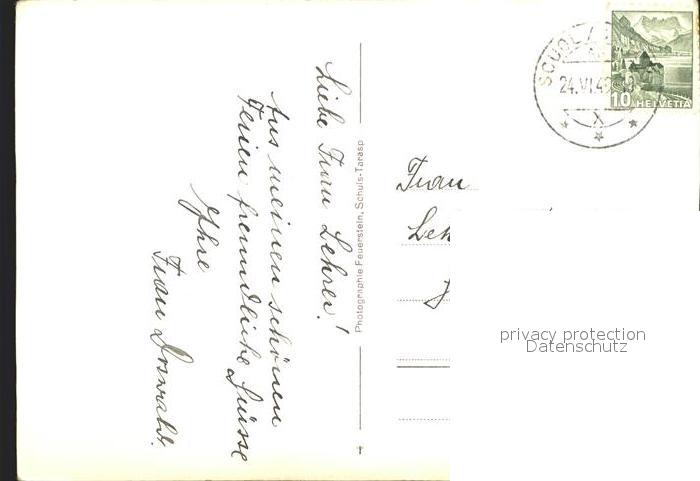 Liebe Frau Lehrer!
Aus meinen schönen
Ferien freundliche Grüsse
Ihre
Frau Oswald.
Photographie Feuerstein, Schuls-Tarasp
SCUOL/
24.VI.4
X
10 HELVETIA
Frau
Leh
privacy protection
Datenschutz